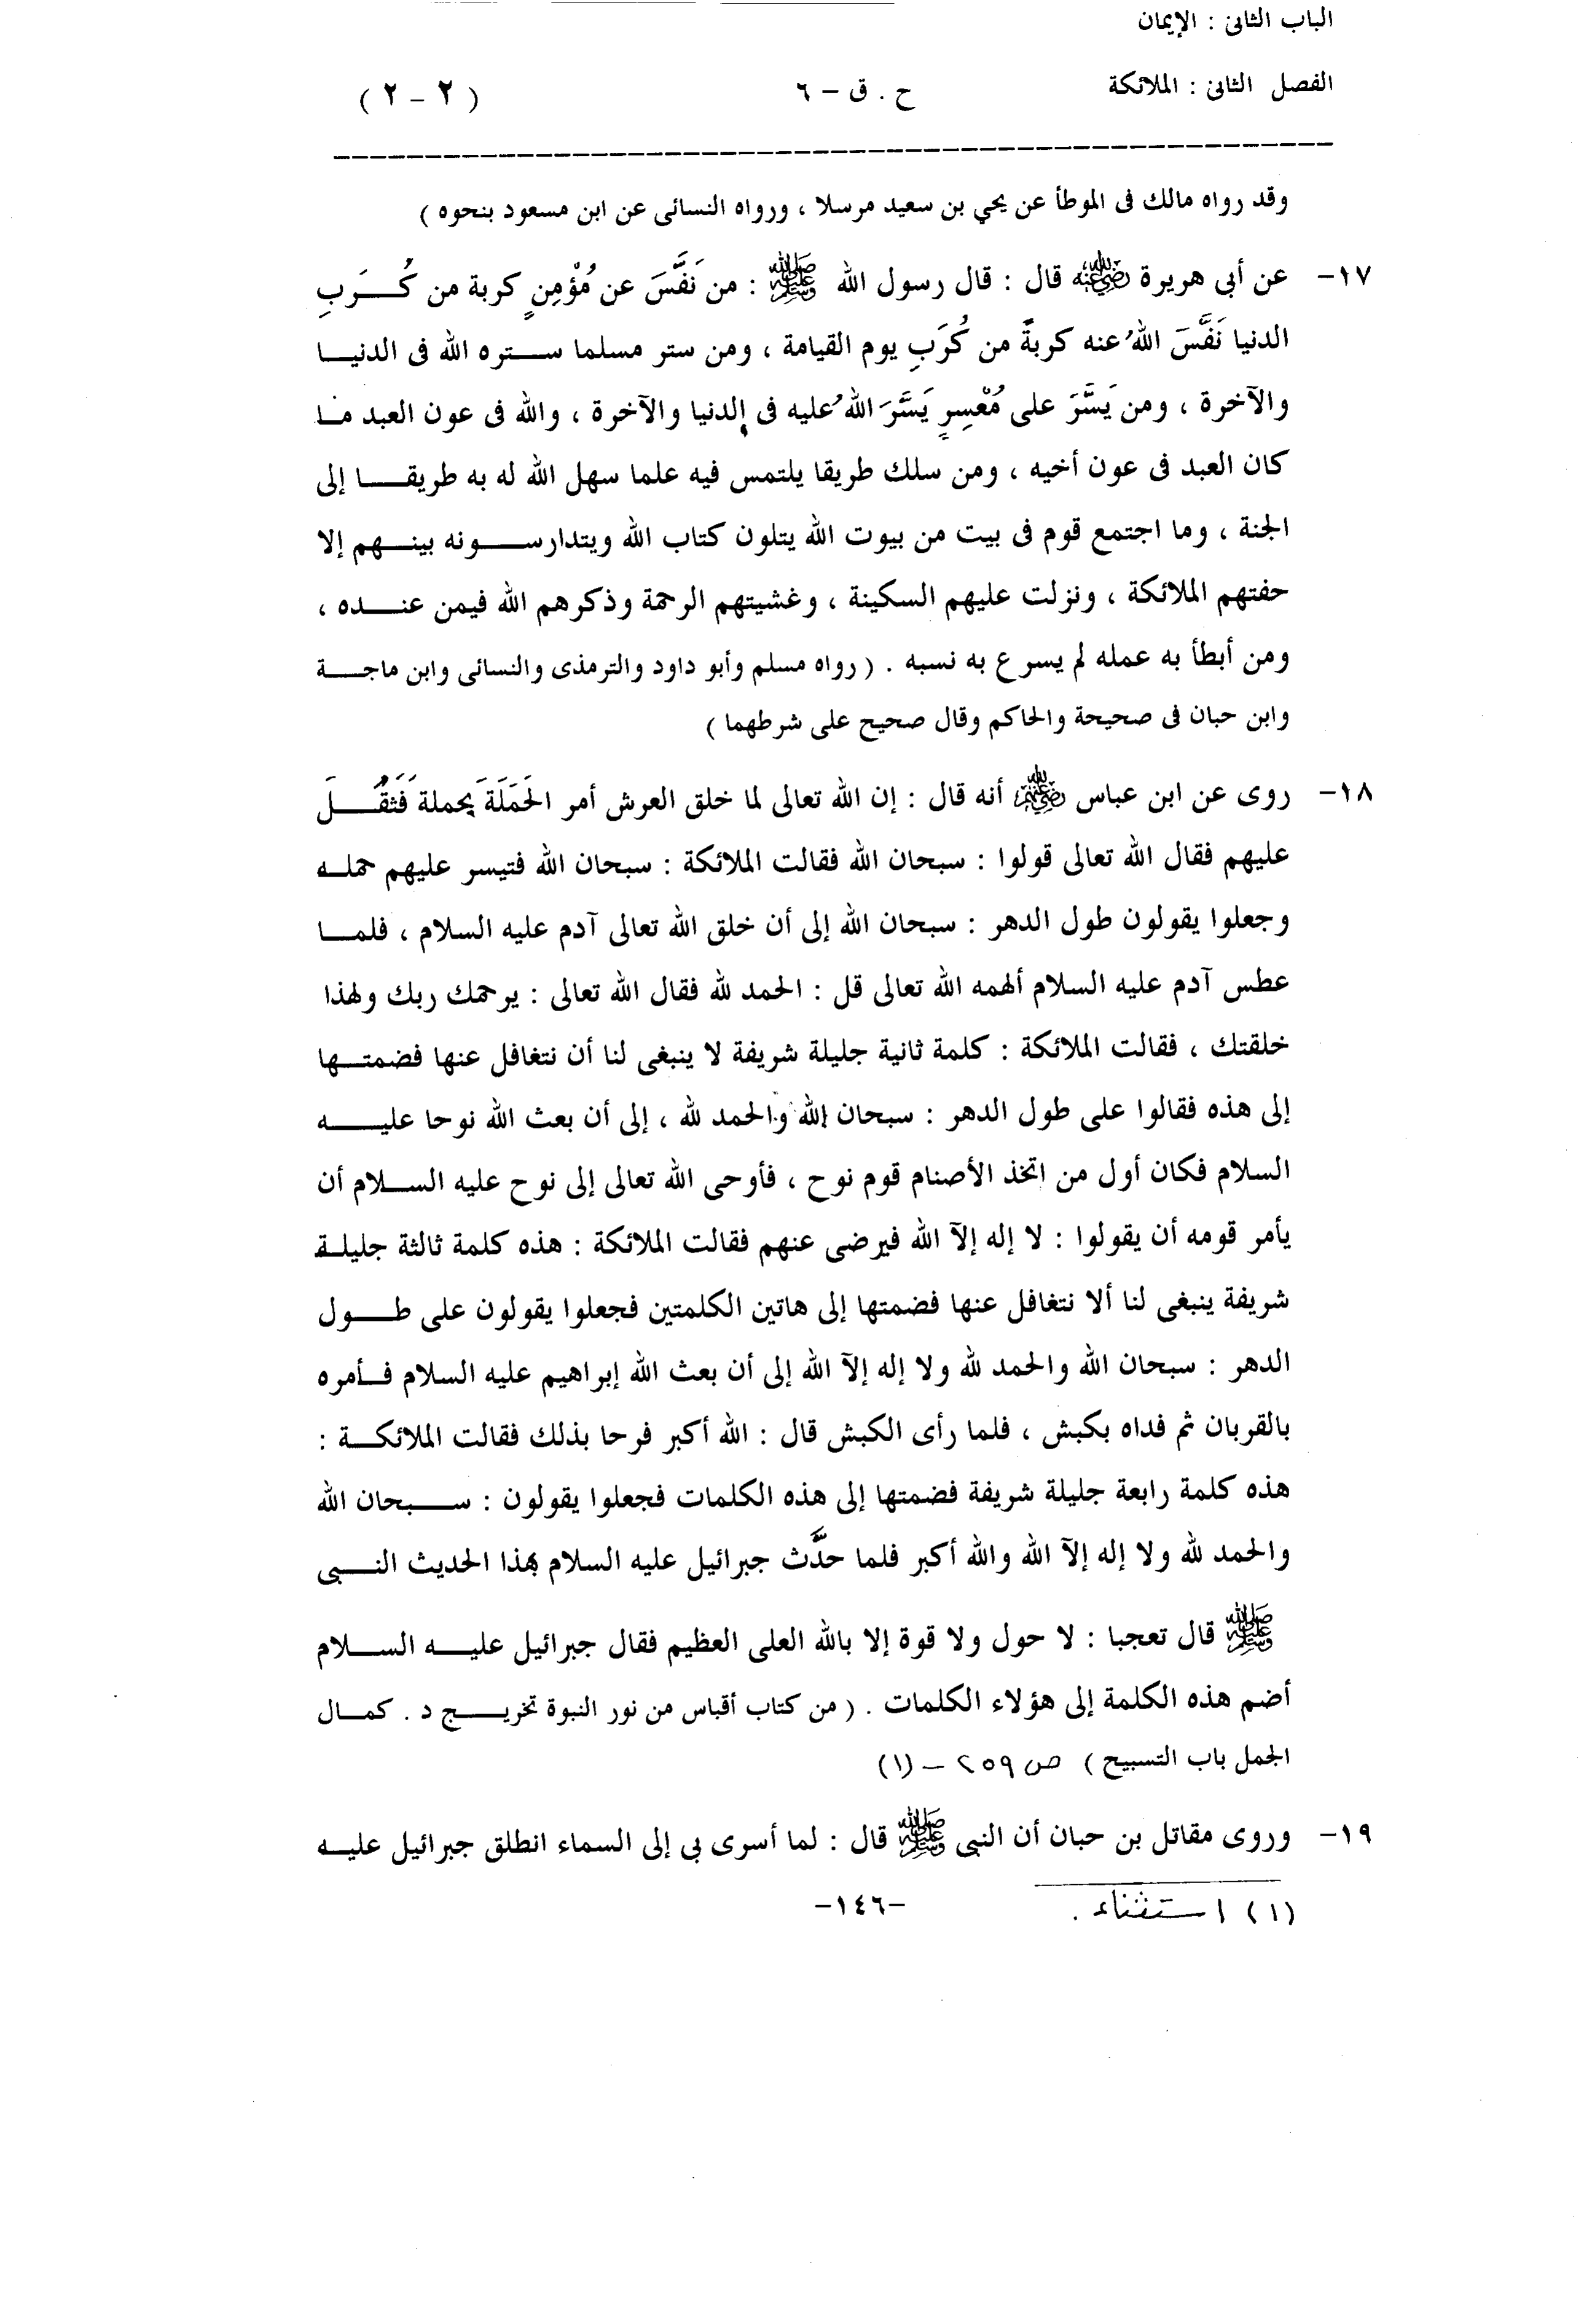 الباب الثانى : الإيمان
الفصل الثانى : الملائكة ح . ق – ٦ ( ٢ – ٢ )
وقد رواه مالك فى الموطأ عن يحي بن سعيد مرسلا ، ورواه النسائى عن ابن مسعود بنحوه )
١٧– عن أبى هريرة رضي الله عنه قال : قال رسول الله ﷺ : من نَفَّسَ عن مُؤْمِنٍ كربة من كُــرَبِ
الدنيا نَفَّسَ اللهُ عنه كربةً من كُرَبِ يوم القيامة ، ومن ستر مسلما ستره الله فى الدنيا
والآخرة ، ومن يَسَّرَ على مُعْسِرٍ يَسَّرَ اللهُ عليه فى الدنيا والآخرة ، والله فى عون العبد ما
كان العبد فى عون أخيه ، ومن سلك طريقا يلتمس فيه علما سهل الله له به طريقا إلى
الجنة ، وما اجتمع قوم فى بيت من بيوت الله يتلون كتاب الله ويتدارسونه بينهم إلا
حفتهم الملائكة ، ونزلت عليهم السكينة ، وغشيتهم الرحمة وذكرهم الله فيمن عنده ،
ومن أبطأ به عمله لم يسرع به نسبه . ( رواه مسلم وأبو داود والترمذى والنسائى وابن ماجة
وابن حبان فى صحيحة والحاكم وقال صحيح على شرطهما )
١٨– روى عن ابن عباس رضي الله عنهم أنه قال : إن الله تعالى لما خلق العرش أمر الحَمَلَةَ بحملة فَثَقُــلَ
عليهم فقال الله تعالى قولوا : سبحان الله فقالت الملائكة : سبحان الله فتيسر عليهم حمله
وجعلوا يقولون طول الدهر : سبحان الله إلى أن خلق الله تعالى آدم عليه السلام ، فلما
عطس آدم عليه السلام ألهمه الله تعالى قل : الحمد لله فقال الله تعالى : يرحمك ربك ولهذا
خلقتك ، فقالت الملائكة : كلمة ثانية جليلة شريفة لا ينبغى لنا أن نتغافل عنها فضمتها
إلى هذه فقالوا على طول الدهر : سبحان الله والحمد لله ، إلى أن بعث الله نوحا عليه
السلام فكان أول من اتخذ الأصنام قوم نوح ، فأوحى الله تعالى إلى نوح عليه السلام أن
يأمر قومه أن يقولوا : لا إله إلآ الله فيرضى عنهم فقالت الملائكة : هذه كلمة ثالثة جليلة
شريفة ينبغى لنا ألا نتغافل عنها فضمتها إلى هاتين الكلمتين فجعلوا يقولون على طول
الدهر : سبحان الله والحمد لله ولا إله إلآ الله إلى أن بعث الله إبراهيم عليه السلام فأمره
بالقربان ثم فداه بكبش ، فلما رأى الكبش قال : الله أكبر فرحا بذلك فقالت الملائكة :
هذه كلمة رابعة جليلة شريفة فضمتها إلى هذه الكلمات فجعلوا يقولون : سبحان الله
والحمد لله ولا إله إلآ الله والله أكبر فلما حدَّث جبرائيل عليه السلام بهذا الحديث النبى
ﷺ قال تعجبا : لا حول ولا قوة إلا بالله العلى العظيم فقال جبرائيل عليه السلام
أضم هذه الكلمة إلى هؤلاء الكلمات . ( من كتاب أقباس من نور النبوة تخريج د . كمال
الجمل باب التسبيح ) ص ٢٥٩ – (١)
١٩– وروى مقاتل بن حبان أن النبى ﷺ قال : لما أسرى بى إلى السماء انطلق جبرائيل عليه
(١) استثناء .
–١٤٦–